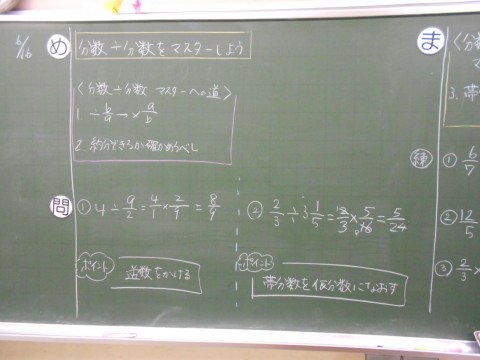 6/16
め 分数÷分数をマスターしよう
〈分数÷分数 マスターへの道〉
1 ÷b/a→×a/b
2. 約分できるか確かめるべし
問 ① 4÷9/2=4/1×2/9=8/9
ポイント 逆数をかける
② 2/3÷3 1/5=2/3×5/16=5/24
ポイント 帯分数を仮分数になおす
ま 〈分数
マ
3. 帯
練 ① 6/7
② 12/5
③ 2/3×